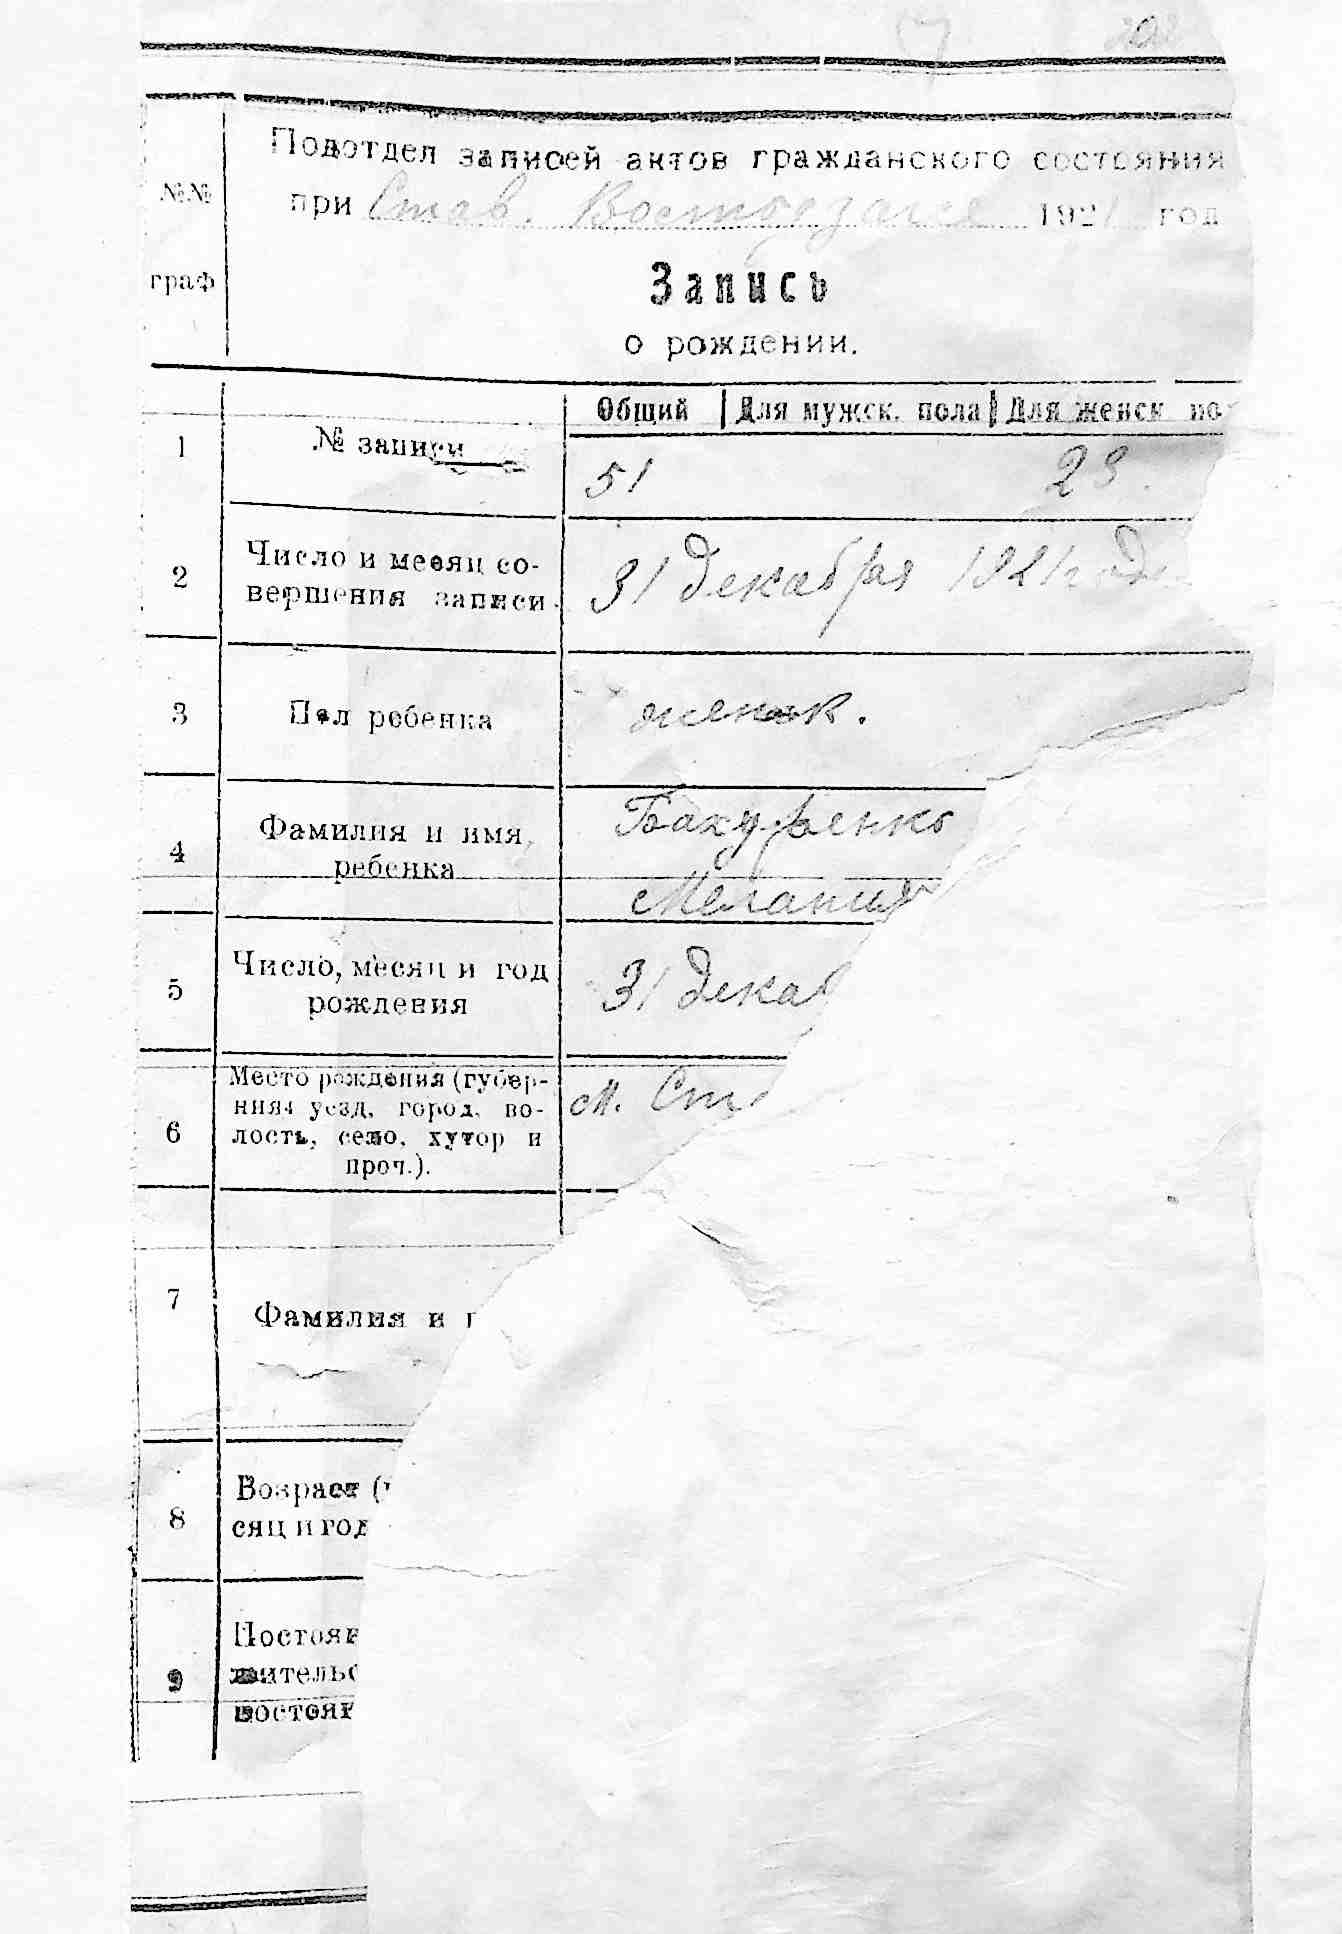 №№
граф
Подотдел записей актов гражданского состояния
при Став. 1921 год
Запись
о рождении.
Общий Для мужск. пола Для женск по
1 № записи 51 28.
2 Число и месяц со-
вершения записи. 31 декабря 1921 года
3 Пол ребенка женск.
4 Фамилия и имя, ребенка
Мелания
5 Число, месяц и год
рождения 31 декаб
6 Место рождения (губер-
ния, уезд, город, во-
лость, село, хутор и
проч.).
м. Ст
7 Фамилия и
8 Возраст (
сяц и год
9 Постоян
жительс
постоян